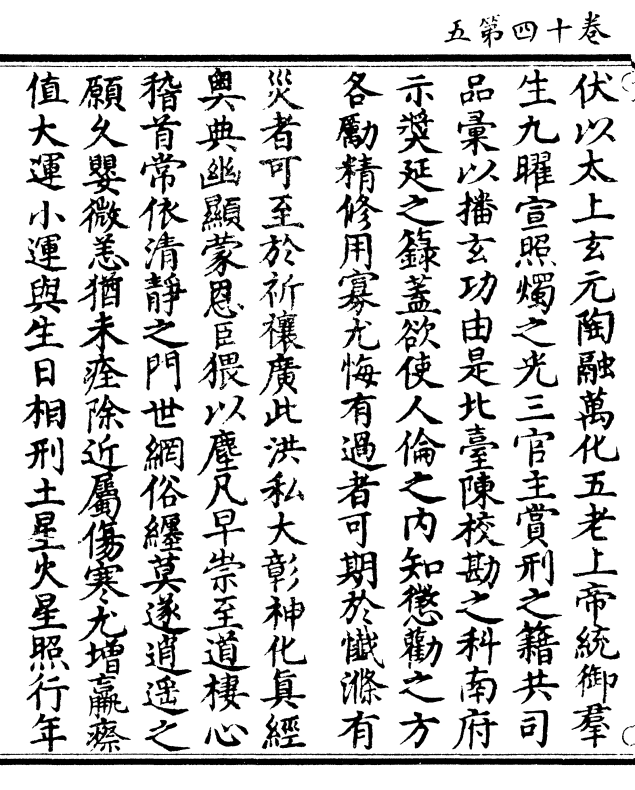 卷十四第五
伏以太上玄元陶融萬化五老上帝統御羣
生九曜宣照燭之光三官主賞刑之籍共司
品彙以播玄功由是北臺陳校勘之科南府
示獎延之籙蓋欲使人倫之内知懲勸之方
各勵精修用寡尤悔有過者可期於懺滌有
災者可至於祈禳廣此洪私大彰神化真經
奧典幽顯蒙恩臣猥以塵凡早崇至道棲心
稽首常依清靜之門世網俗纏莫遂逍遥之
願久嬰微恙猶未痊除近屬傷寒尤增羸瘵
值大運小運與生日相刑土星火星照行年